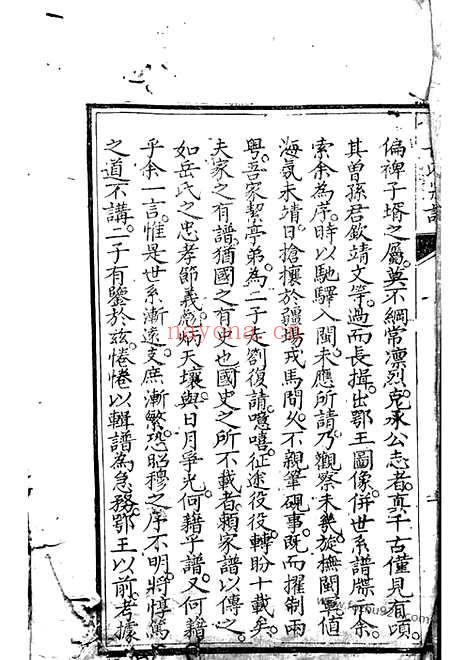 偏裨子壻之屬莫不綱常凛烈克承公志者真千古僅見有頃
其曾孫君欽靖文等過而長揖出鄂王圖像併世系譜牒示余
索余為序時以馳驛入閩未應所請乃觀察未幾旋撫閩軍值
海氛未靖日搶攘於疆場戎馬間久不親筆硯事既而擢制兩
粤吾家絜亭弟為二子走劄復請噫嘻征途役役轉盼十載矣
夫家之有譜猶國之有史也國史之所不載者賴家譜以傳之
如岳氏之忠孝節義炳天壤與日月爭光何藉乎譜又何藉
乎余一言惟是世系漸遠支庶漸繁恐昭穆之序不明將惇篤
之道不講二子有鑒於玆惓惓以輯譜為急務鄂王以前考據
nayona.cn